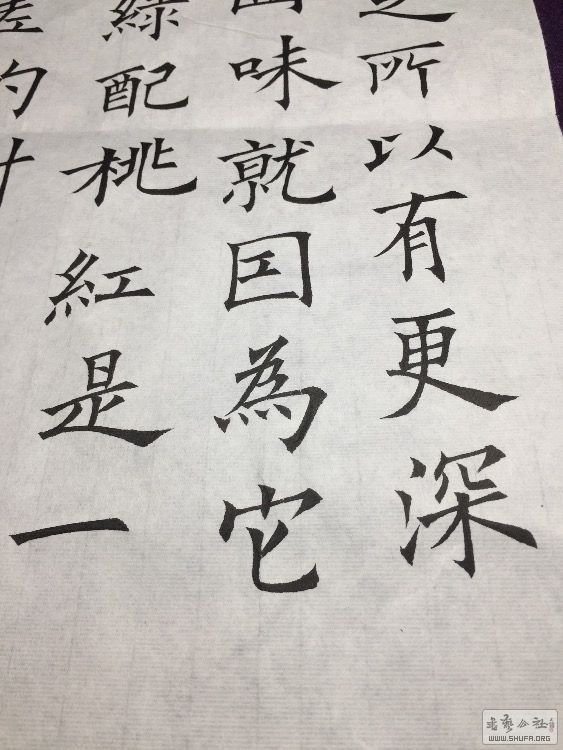 之所以有更深
味就因為它
綠配桃紅是一
书艺公社
WWW.SHUFA.ORG